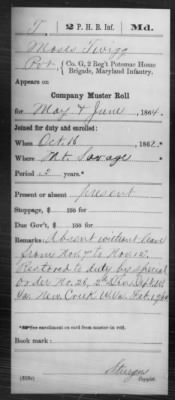 T | 2 P. H. B. Inf. | Md.
Moses Twigg
Pvt, Co. G, 2 Reg't Potomac Home
Brigade, Maryland Infantry.
Appears on
Company Muster Roll
for May & June, 1864.
Joined for duty and enrolled:
When Oct. 16, 1862.
Where Mt. Savage
Period 3 years.
Present or absent present
Stoppage, $ 100 for
Due Gov't, $ 100 for
Remarks: Absent without leave
from Nov. 7 to Nov. 12.
Restored to duty by special
order No. 26, 2d Div. Dept. W.
Va. New Creek W. Va. Feb.
*See enrollment on card from muster in roll.
Book mark:
Sturgis
(358c) Copyist.